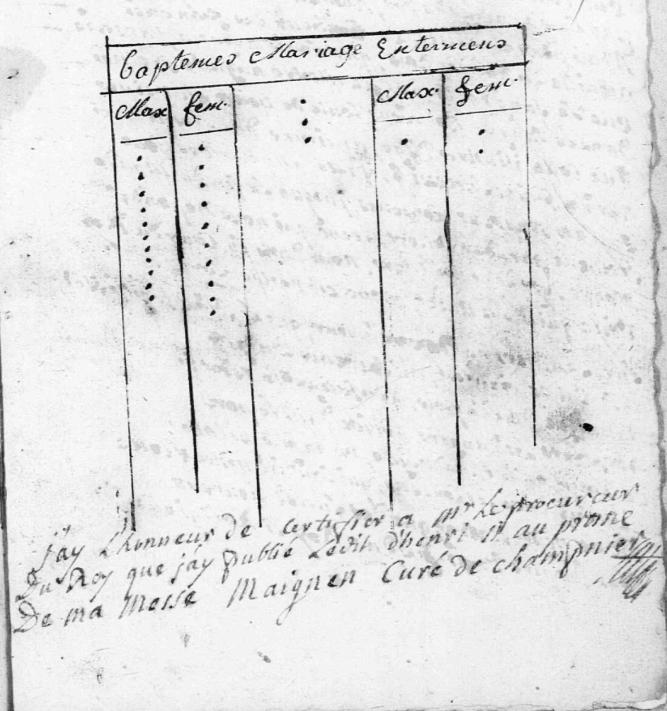 Baptemes Mariage Enterremens
Max fem. Max. fem.
j'ay L'honneur de certifier a mr Le procureur
Du Roy que j'ay publié L'edit d'henri II au prone
De ma Messe Maignen Curé de champnier